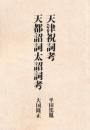 天津祝詞考
天都詔詞太詔詞考
平田篤胤
大国隆正